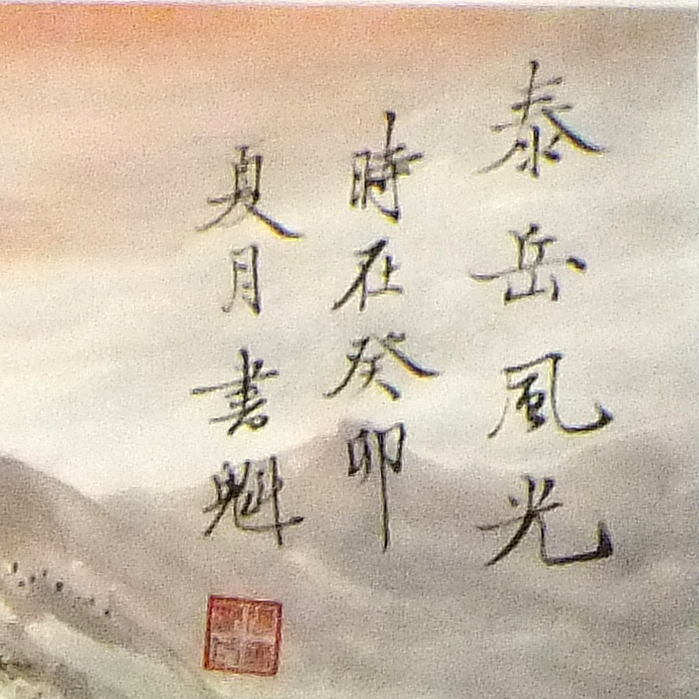 泰岳風光
時在癸卯
夏月書魁